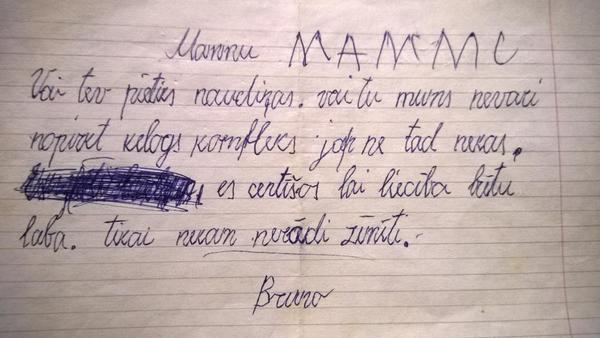 Mammu MAMMU
Vai tev pietiks naudiņas. vai tu mums nevari
nopirkt kelogs kompleks ja ne tad nekas.
es centīšos lai liecība būtu
laba. tikai nevam nerādi zīmīti.
Bruno